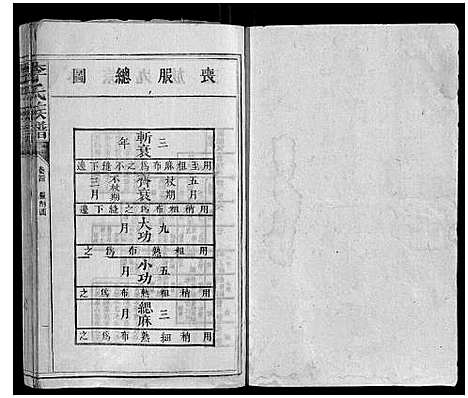 喪服總圖
斬衰 三年
用至粗麻布爲之不縫下邊
齊衰 五月 杖期 不杖期 三月
用稍粗布爲之縫下邊
大功 九月
用粗熟布爲之
小功 五月
用稍粗熟布爲之
緦麻 三月
用稍細熟布爲之
氏族譜